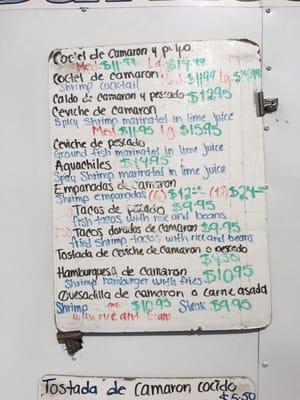 Coctel de camaron y pulpo
Med $11.99 Lg $14.99
Coctel de camaron $11.99 Lg $14.99
Shrimp cocktail
Caldo de camaron y pescado $12.95
Ceviche de camaron
Spicy shrimp marinated in lime juice
Med $11.95 Lg $15.95
Ceviche de pescado
Ground fish marinated in lime juice
Aguachiles $14.95
Spicy Shrimp marinated in lime juice
Empanadas de camaron
Shrimp empanadas (6) $12 (12) $24
Tacos de pescado $9.95
fish tacos with rice and beans
Tacos dorados de camaron $9.95
fried shrimp tacos with rice and beans
Tostada de ceviche de camaron o pescado
Hamburguesa de camaron $10.95
Shrimp hamburger with fries
Quesadilla de camaron o carne asada
Shrimp $10.95 Steak $9.95
with rice and beans
Tostada de camaron cocido
$5.50